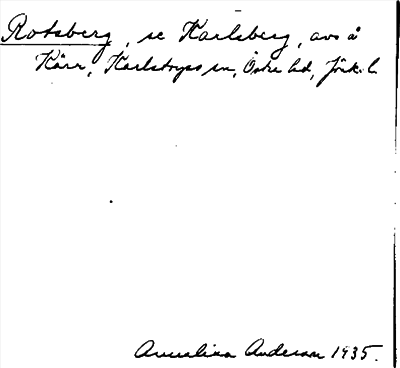 Rotsberg, se Karlsberg, avs å
Kärr, Karlstorps sn, Östra hd, Jönk. l.
Annalisa Anderson 1935.